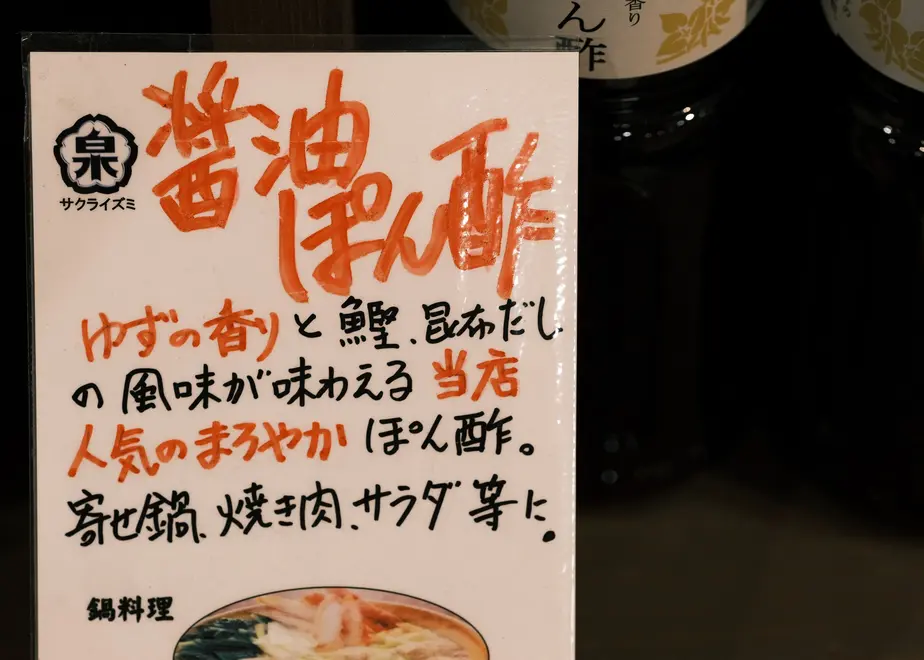 泉
サクライズミ
醤油
ぽん酢
ゆずの香りと鰹、昆布だし
の風味が味わえる当店
人気のまろやかぽん酢。
寄せ鍋、焼き肉、サラダ等に。
鍋料理
香り
ん酢